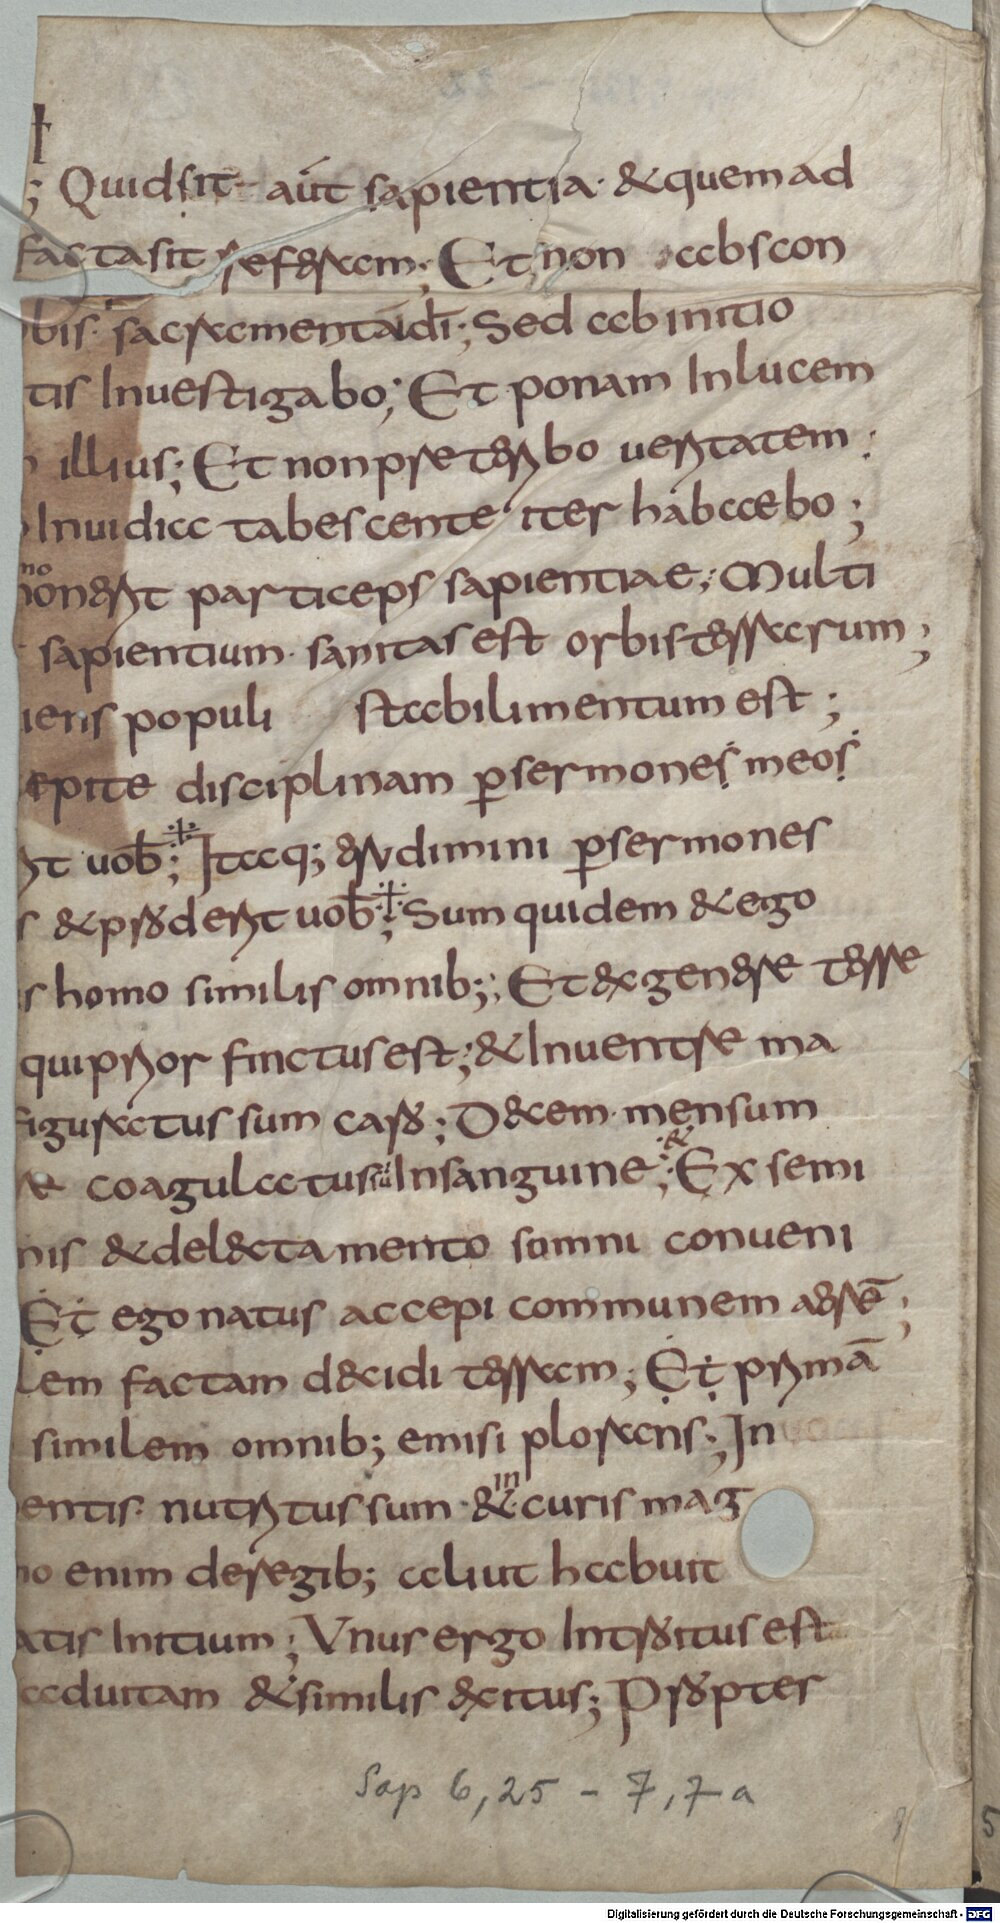 ; Quid sit aut sapientia · & quem ad
facta sit referam ; Et non abscon
bis · sacramenta d̅i ; Sed ab initio
tis Investigabo ; Et ponam In lucem
illius ; Et non preteribo ueritatem ;
Inuidia tabescente iter habaebo ;
no
non erit particeps sapientiae ; Multi
sapientium · sanitas est orbis terrarum ;
iens populi stabilimentum est ;
epite disciplinam p̲ sermones meos
it uob̅ ; Itaq; erudimini p̲ sermones
s & proderit uob̅ ; Sum quidem & ego
s homo similis omnib; ; Et ex genere terre
qui prior finctus est ; & Inuentre ma
figuratus sum caro ; Decem mensum
re coagulatus sū In sanguine ; & Ex semi
nis & delectamento somni conueni
Et ego natus accepi communem aerē ;
lem factam decidi terram ; Et primā
similem omnib; emisi plorans ; In
entis · nutritus sum · & in curis mag
no enim de regib; aliut habuit
atis Initium ; Vnus ergo Introitus est
ad uitam & similis exitus ; Propter
Sap 6,25 - 7,7a
5
Digitalisierung gefördert durch die Deutsche Forschungsgemeinschaft - DFG